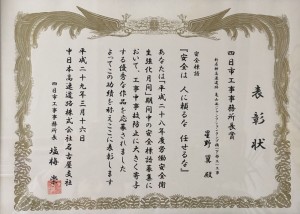 表彰状
四日市工事事務所長賞
星野 翼 殿
安全標語
『安全は 人に頼るな 任せるな』
あなたは『平成二十八年度労働安全衛
生強化月間』期間中の安全標語募集に
おいて、工事中事故防止に大きく寄与
する優秀な作品を応募されました
よってこの功績を称えここに表彰します
平成二十九年三月十六日
中日本高速道路株式会社名古屋支社
四日市工事事務所長 塩梅 崇